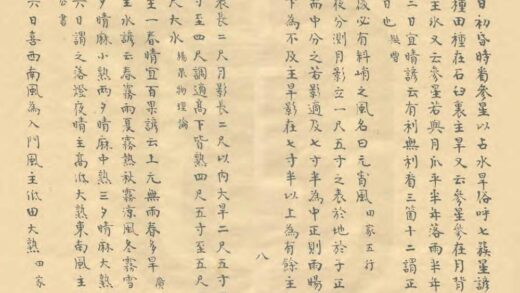 日初昏時看參星以占水旱俗呼七簇星諺
種田種在石臼裏主旱又云參星參在月背
主水又云參星若與月爪平半年落雨半年
二日宜晴諺云有利無利看三箇十二謂正
日也
後必有料峭之風名曰元宵風 田家五行
夜分測月影立一尺五寸之表於地於子正
而中分之若影適及七寸半為中正則雨暘
下為不及主旱影在七寸半以上為有餘主
八
表長二尺月影長二尺以內大旱二尺五寸
寸至四尺調適高下皆熟四尺五寸至五尺
尺大水 楊泉物理論
主一春晴宜百果諺云上元無雨春多旱
主水諺云春霧雨夏霧熱秋霧涼風冬霧雪
夕晴麻小熟兩夕晴麻中熟三夕晴麻大熟
六日謂之落燈夜晴主高低大熟東南風主
占書
六日喜西南風為入門風主低田大熟 田家